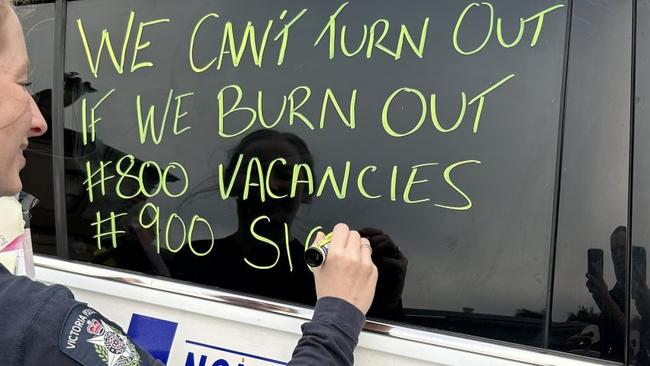 WE CAN'T TURN OUT
IF WE BURN OUT
#800 VACANCIES
#900 SI
VICTORIA